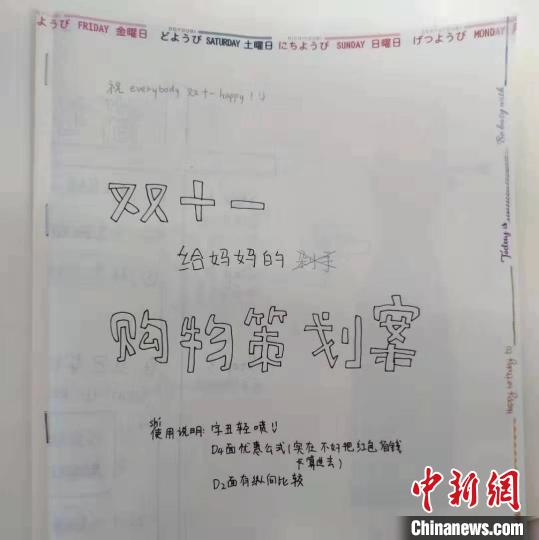 ようび FRIDAY 金曜日 どようび SATURDAY 土曜日 にちようび SUNDAY 日曜日 げつようび MONDAY
祝 everybody 双十一 happy！
双十一
给妈妈的 剁手
购物策划案
shǐ
使用说明：字丑轻喷
D4面优惠公式(实在不好把红包省钱
卡算进去)
D2面有纵向比较
Be busy with
Today is
Happy writing to
中新网
Chinanews.com